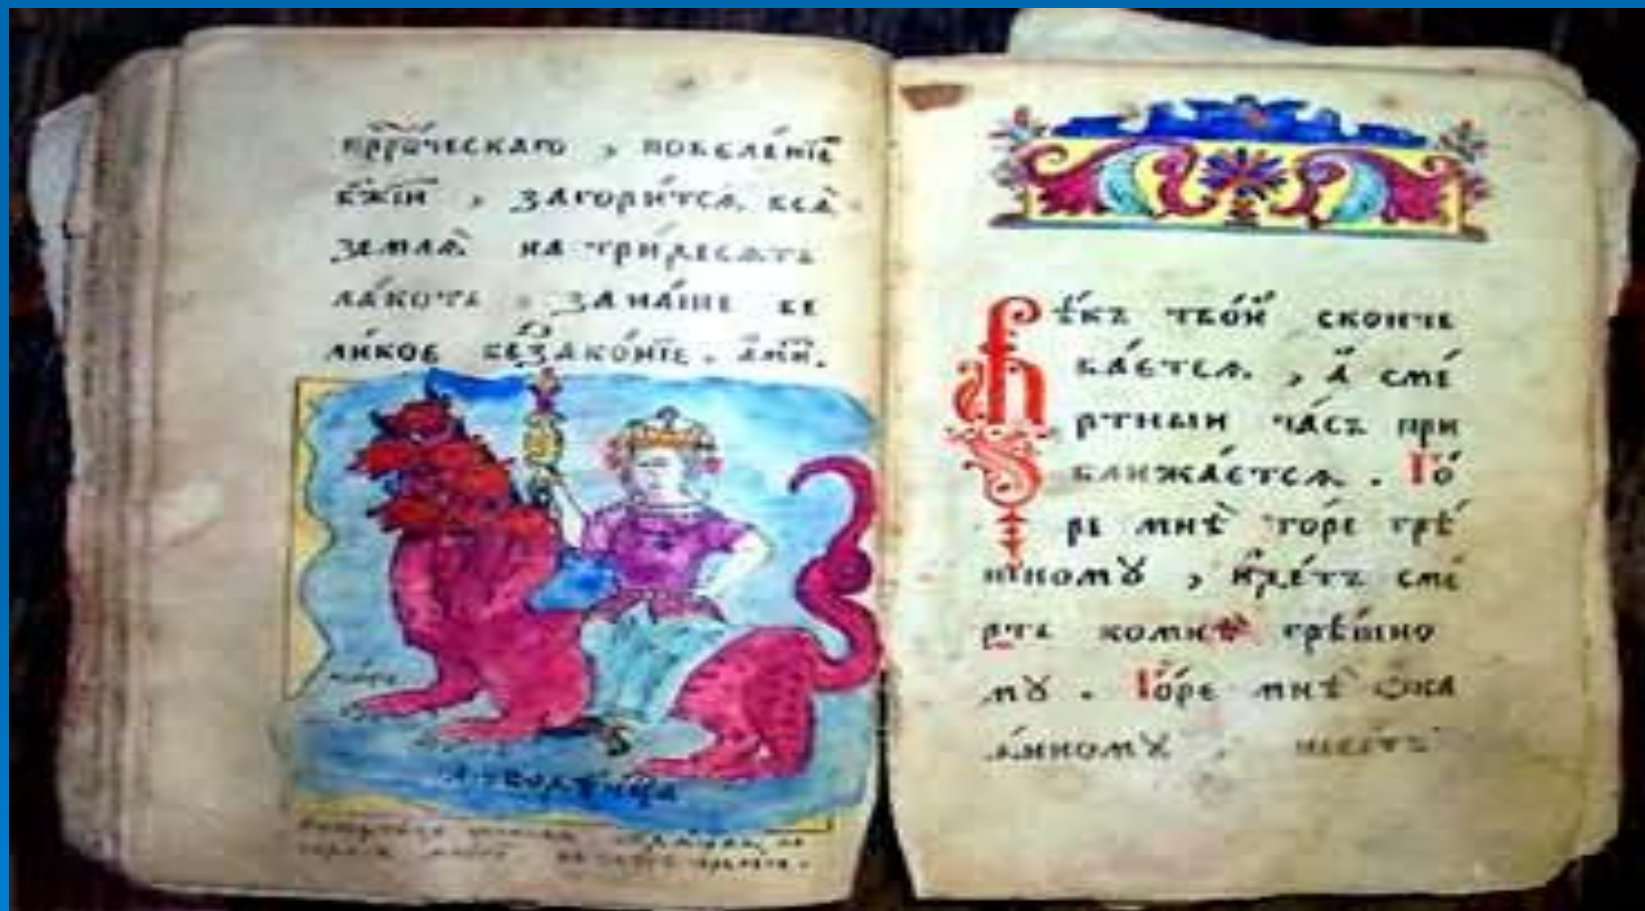 пррⷪ҇ческаго , повелѣ́нїе
бж҃їи , загори́тсѧ всѧ̀
землѧ̀ на три́десѧть
ла́коть , за на́ше ве
ли́кое беззако́нїе . а҆ми́н.
любодѣ́ица
вѣ́къ тво́й сконче
ва́етсѧ , а҆ сме́
ртный ча́съ при
ближа́етсѧ . Го́
ре мнѣ̀ го́ре грѣ́
шному , и҆де́тъ сме́
рть комнѣ̀ грѣ́шно
му . Го́ре мнѣ̀ ѻ҆ка
ѧ́нному ,